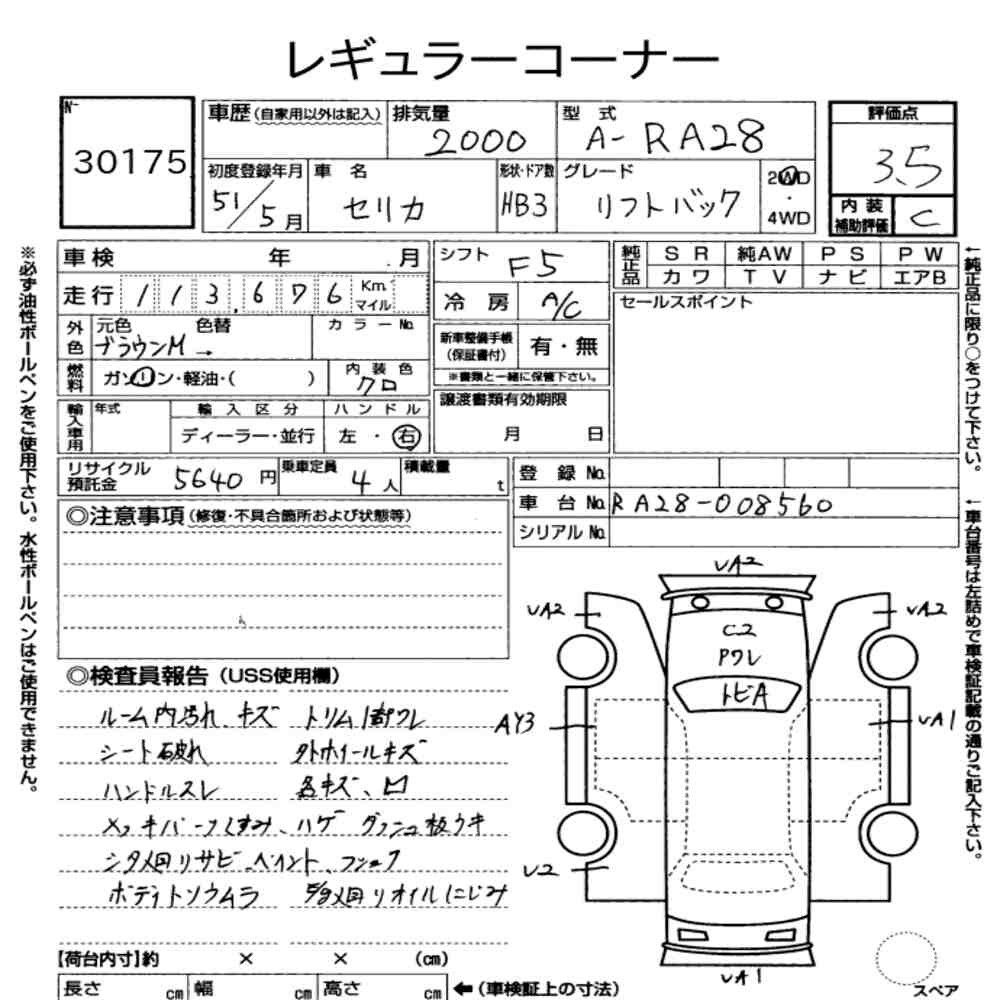 レギュラーコーナー
No.
30175
車歴(自家用以外は記入)
排気量
2000
型 式
A-RA28
評価点
3.5
初度登録年月
51/5月
車 名
セリカ
形状・ドア数
HB3
グレード
リフトバック
2WD
・
4WD
内装
補助評価
C
車検 年 月
シフト F5
純正品
SR 純AW PS PW
カワ TV ナビ エアB
走行 113,676 Km マイル
冷房 A/C
セールスポイント
外色
元色 色替
ブラウンM →
カラーNo.
新車整備手帳
(保証書付)
有・無
※書類と一緒に保管下さい。
燃料
ガソリン・軽油・( )
内装色
クロ
譲渡書類有効期限
月 日
輸入車用
年式
輸入区分
ハンドル
ディーラー・並行
左・右
リサイクル
預託金
5640円
乗車定員
4人
積載量
t
登録No.
車台No. RA28-008560
シリアルNo.
◎注意事項(修復・不具合箇所および状態等)
◎検査員報告(USS使用欄)
ルーム内汚れ キズ トリム1部ワレ
シート破れ 外ホイールキズ
ハンドルスレ 各キズ、凹
メッキパーツくすみ、ハゲ ダッシュ板ウキ
シタ廻りサビ、ペイント、
ボディトソウムラ 廻リオイルにじみ
UA2
UA2
UA2
C2
Pワレ
トビA
AY3
UA1
U2
UA1
スペア
【荷台内寸】約 × × (cm)
長さ cm 幅 cm 高さ cm
←(車検証上の寸法)
※必ず油性ボールペンをご使用下さい。水性ボールペンはご使用できません。
←純正品に限り○をつけて下さい。
←車台番号は左詰めで車検証記載の通りご記入下さい。